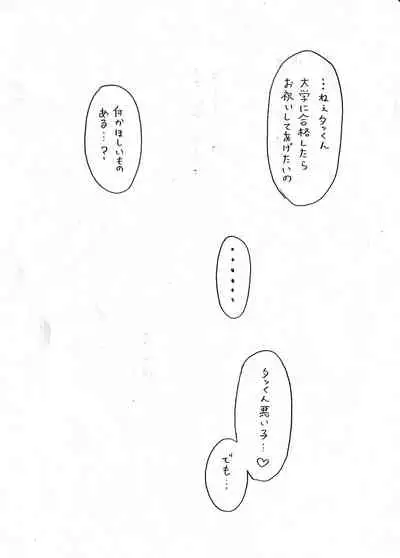 …ねぇタッくん
大学に合格したら
お祝いしてあげたいの
何かほしいもの
ある…？
・・・・・・
タッくん悪い子…♡
でも…